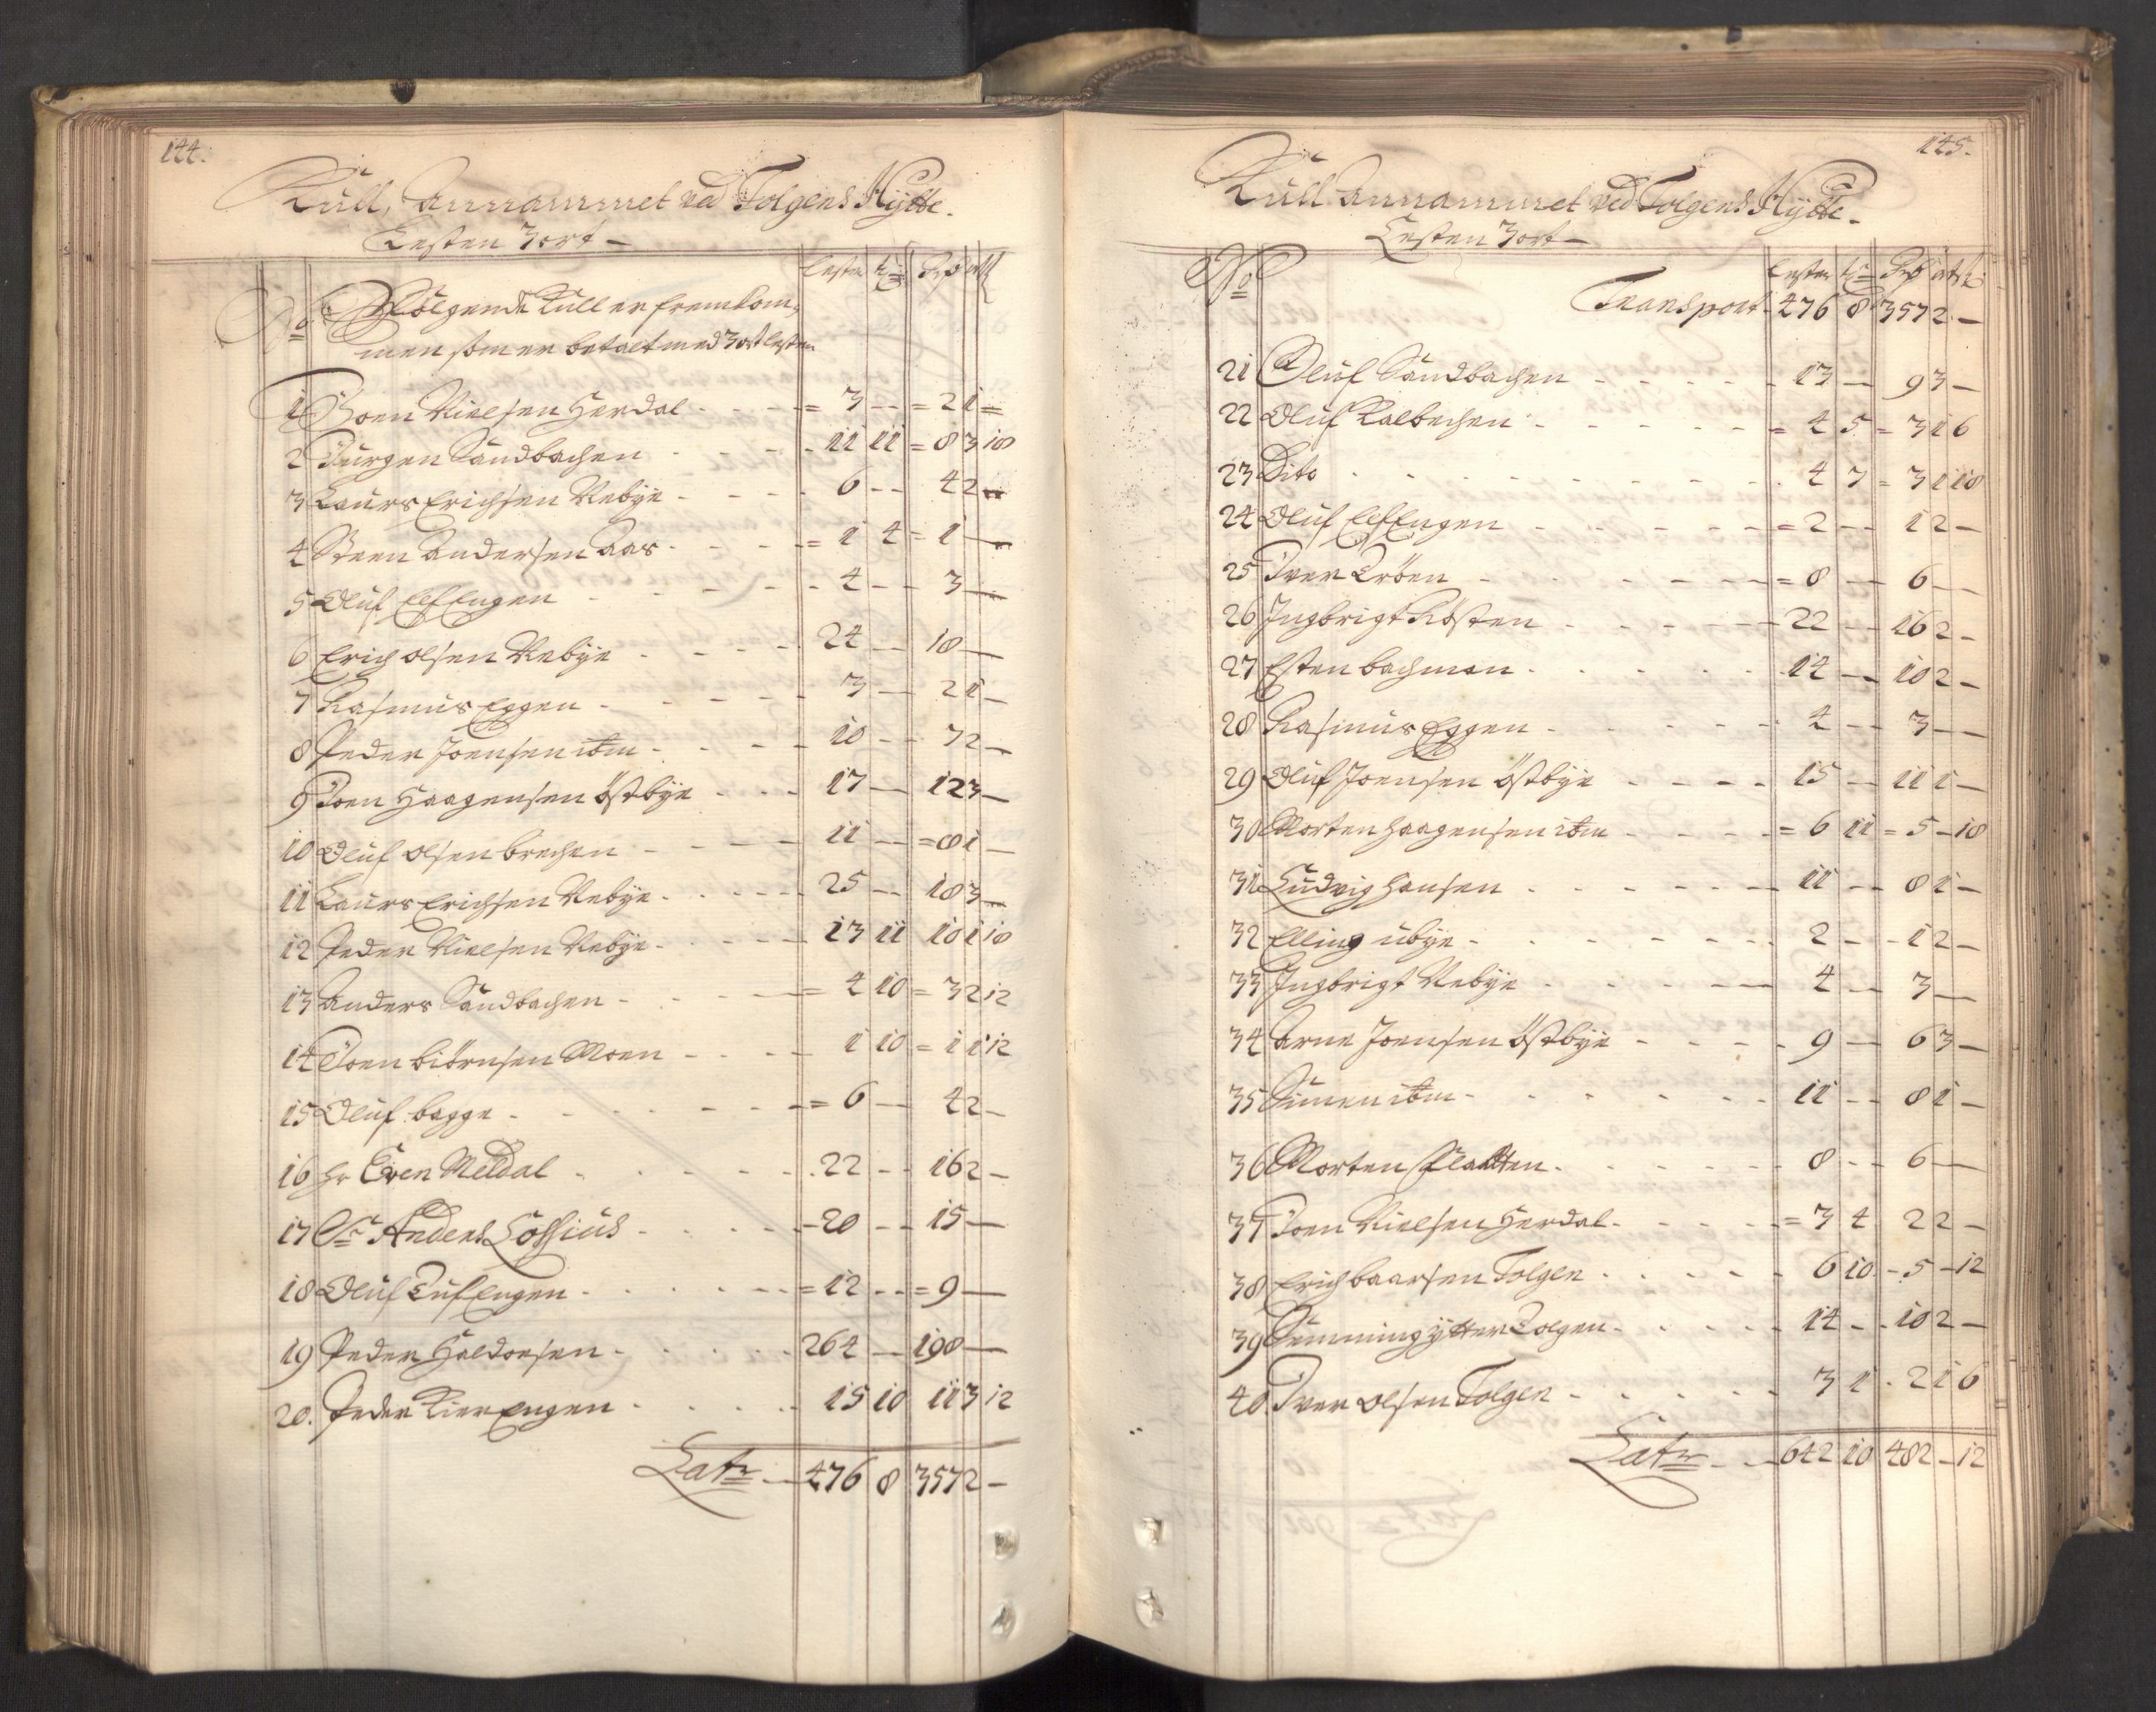 144.
Kull, Annammet ved Tolgens Hytte.
Lesten 3 ort –
No Fölgende Kull er fremkom-
men som er betalt med 3 ort lesten
lester tr Rdr ort
1 Joen Nielsen Herdal - - - = 3 - - = 2 1 =
2 Jurgen Sandbachen - - - 11 11 = 8 3 18
3 Laurs Erichsen Nebye - - - 6 - - 4 2 -
4 Steen Andersen Aas - - - = 1 4 = 1 -
5 Oluf Elf Engen - - - 4 - - 3 -
6 Erich olsen Nebye - - - 24 - - 18 -
7 Rasmus Eggen - - - 3 - 2 1 -
8 Peder Joensen ibm - - - 10 - - 7 2 -
9 Joen Haagensen östbye - - - 17 - 12 3 -
10 Oluf olsen brechen - - - 11 - - = 8 1 -
11 Laurs Erichsen Nebye - - - 25 - - 18 3 -
12 Peder Nielsen Nebye - - - 13 11 10 1 18
13 Anders Sandbachen - - - = 4 10 = 3 2 12
14 Joen biörnsen Moen - - - 1 10 = 1 1 12
15 Oluf bagge - - - = 6 - 4 2 -
16 Hr Even Meldal - - - 22 - - 16 2 -
17 Sr Anders Lossius - - - 20 - - 15 -
18 Oluf Tuf Engen - - - = 12 - - = 9 -
19 Peder Haldorsen - - - 264 - 198 -
20. Peder Kier Engen - - - 15 10 11 3 12
Latr - - 476 8 357 2 -
145.
Kull Annammet ved Tolgens Hytte -
Lesten 3 ort -
No lester tr Rdr ort
Transport - 476 8 357 2 -
21 Oluf Sandbachen - - - 13 - 9 3 -
22 Oluf Kalbechen - - - = 4 5 = 3 1 6
23 Dito - - - 4 3 = 3 1 18
24 Oluf Elf Engen - - - = 2 - - 1 2 -
25 Iver Tröen - - - = 8 - 6 -
26 Ingbrigt Kösten - - - 22 - - 16 2 -
27 Esten bachmoen - - - 14 - - 10 2 -
28 Rasmus Eggen - - - 4 - - 3 -
29 Oluf Joensen östbye - - - 15 - - 11 1 -
30 Morten Haagensen ibm - - - = 6 11 = 5 - 18
31 Ludvig Hansen - - - 11 - - 8 1 -
32 Elling ubye - - - 2 - - 1 2 -
33 Ingbrigt Nebye - - - 4 - - 3 -
34 Arne Joensen östbye - - - 9 - 6 3 -
35 Simen ibm - - - 11 - - 8 1 -
36 Morten Flatten - - - 8 - - 6 -
37 Joen Nielsen Herdal - - - = 3 4 2 2 -
38 Erich baarsen Tolgen - - - 6 10 - 5 - 12
39 Semming ytter Tolgen - - - 14 - - 10 2 -
40. Iver olsen Tolgen - - - 3 1 - 2 1 6
Latr - - 642 10 482 - 12